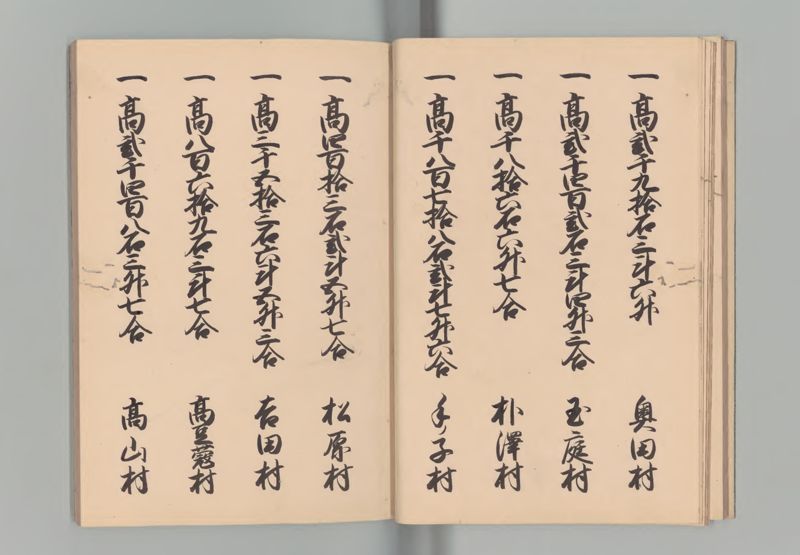 一 高弐千九拾石三斗六升 奥田村
一 高弐千四百弐石三斗四升三合 玉庭村
一 高千八拾六石六升七合 朴澤村
一 高千八百七拾八石弐斗七升六合 手ノ子村
一 高四百拾三石弐斗五升七合 松原村
一 高三千五拾三石六斗五升三合 吉田村
一 高八百六拾九石三斗七合 高豆蒄村
一 高弐千四百八石三升七合 高山村